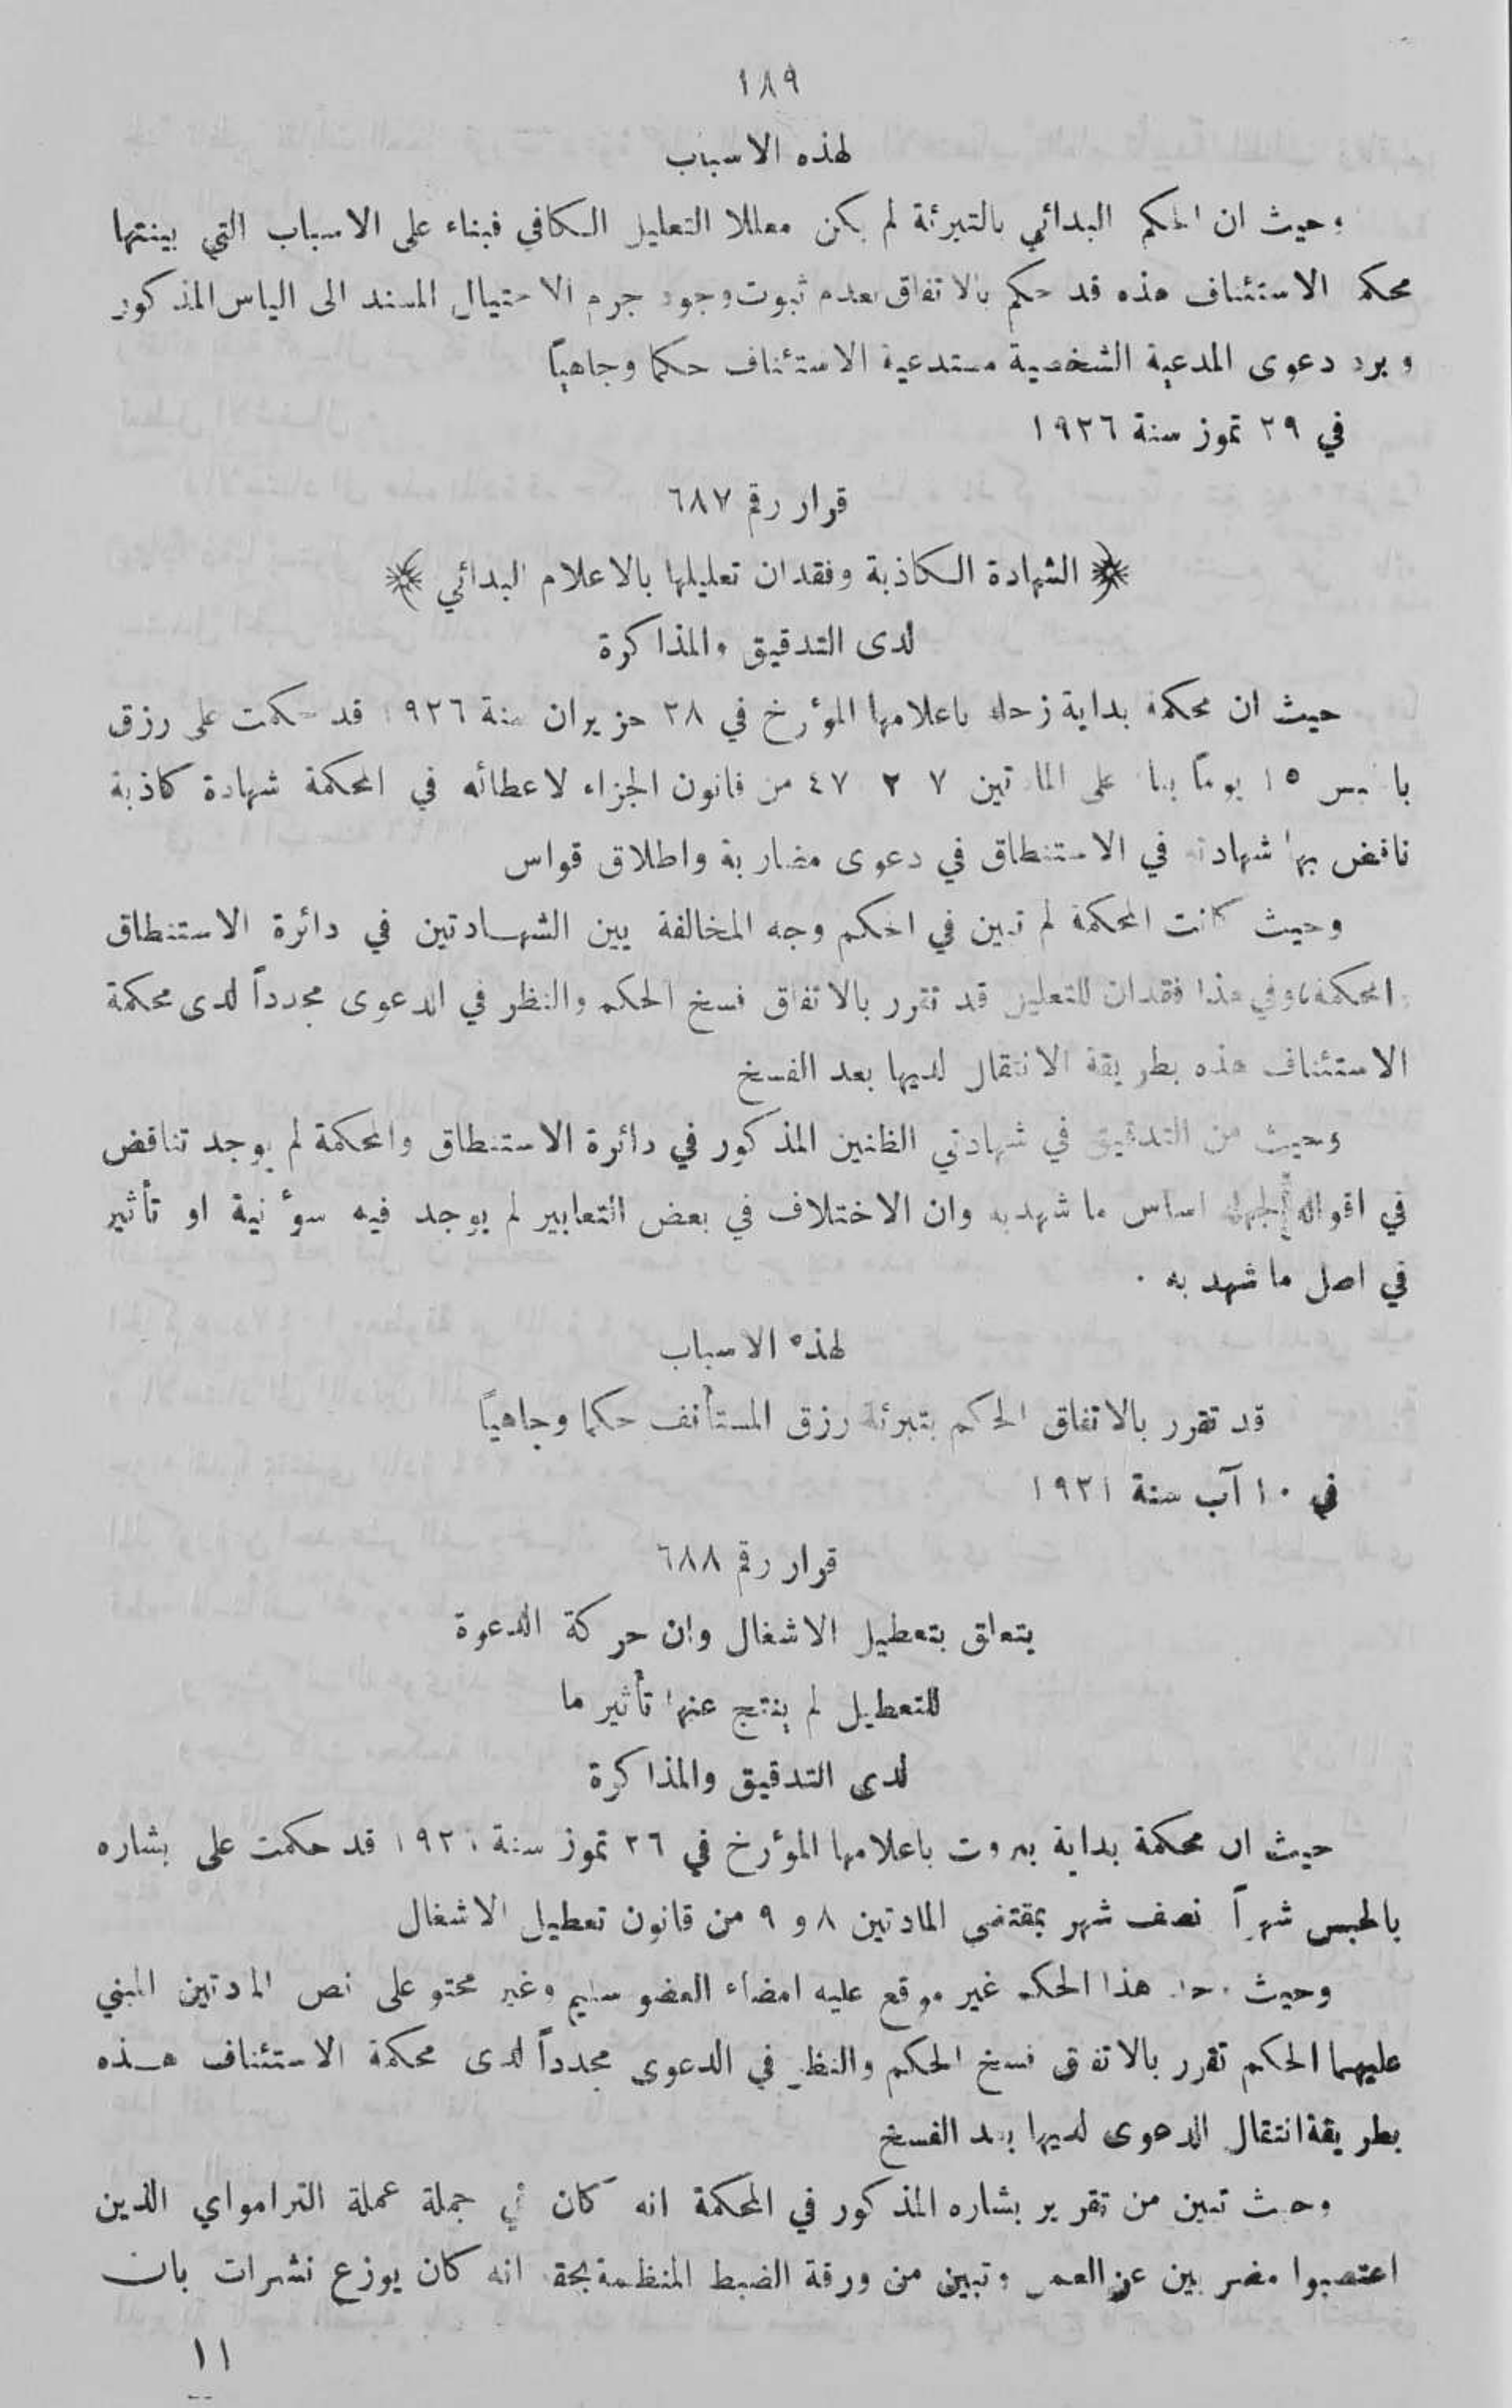 ١٨٩
لهذه الاسباب
وحيث ان الحكم البدائي بالتبرئة لم يكن معللا التعليل الكافي فبناء على الاسباب التي بينتها
محكمة الاستئناف هذه قد حكم بالاتفاق بعدم ثبوت وجود جرم الاحتيال المسند الى الياس المذكور
وبرد دعوى المدعية الشخصية مستدعية الاستئناف حكما وجاهياً
في ٢٩ تموز سنة ١٩٢٦
قرار رقم ٦٨٧
﴿ الشهادة الكاذبة وفقدان تعليلها بالاعلام البدائي ﴾
لدى التدقيق والمذاكرة
حيث ان محكمة بداية زحلة باعلامها المؤرخ في ٢٨ حزيران سنة ١٩٢٦ قد حكمت على رزق
بالحبس ١٥ يوماً بناء على المادتين ٢٠٧ ٤٧ من قانون الجزاء لاعطائه في المحكمة شهادة كاذبة
ناقض بها شهادته في الاستنطاق في دعوى مضاربة واطلاق قواس
وحيث كانت المحكمة لم تبين في الحكم وجه المخالفة بين الشهادتين في دائرة الاستنطاق
والمحكمة، وفي هذا فقدان للتعليل قد تقرر بالاتفاق فسخ الحكم والنظر في الدعوى مجدداً لدى محكمة
الاستئناف هذه بطريقة الانتقال لديها بعد الفسخ
وحيث من التدقيق في شهادتي الظنين المذكور في دائرة الاستنطاق والمحكمة لم يوجد تناقض
في اقواله لجهة اساس ما شهد به وان الاختلاف في بعض التعابير لم يوجد فيه سوء نية او تأثير
في اصل ما شهد به .
لهذه الاسباب
قد تقرر بالاتفاق الحكم بتبرئة رزق المستأنف حكما وجاهياً
في ١٠ آب سنة ١٩٢٦
قرار رقم ٦٨٨
يتعلق بتعطيل الاشغال وان حركة الدعوة
للتعطيل لم ينتج عنها تأثير ما
لدى التدقيق والمذاكرة
حيث ان محكمة بداية بيروت باعلامها المؤرخ في ٢٦ تموز سنة ١٩٢٦ قد حكمت على بشاره
بالحبس شهراً نصف شهر بمقتضى المادتين ٨ و ٩ من قانون تعطيل الاشغال
وحيث هذا الحكم غير موقع عليه امضاء العضو سليم وغير محتو على نص المادتين المبني
عليهما الحكم تقرر بالاتفاق فسخ الحكم والنظر في الدعوى مجدداً لدى محكمة الاستئناف هذه
بطريقة انتقال الدعوى لديها بعد الفسخ
وحيث تبين من تقرير بشاره المذكور في المحكمة انه كان في جملة عملة الترامواي الذين
اعتصبوا مضربين عن العمل وتبين من ورقة الضبط المنظمة بحقه انه كان يوزع نشرات بان
١١